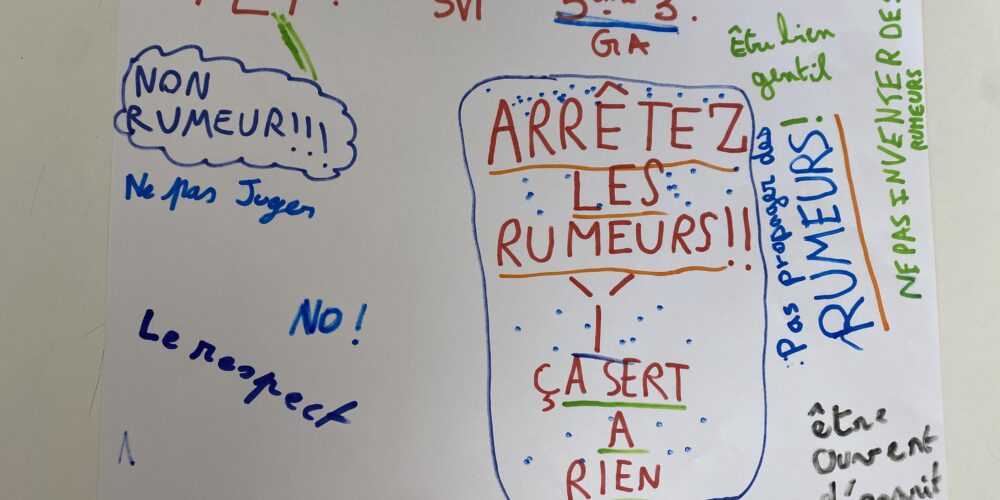 SVT
5ème 3.
GA
NON
RUMEUR!!!
Ne pas Juger
NO !
Le respect
ARRÊTEZ
LES
RUMEURS!!
ÇA SERT
A
RIEN
Être bien
gentil
Pas propager des
RUMEURS!
NE PAS INVENTER DES
RUMEURS
être
ouvert
d'esprit